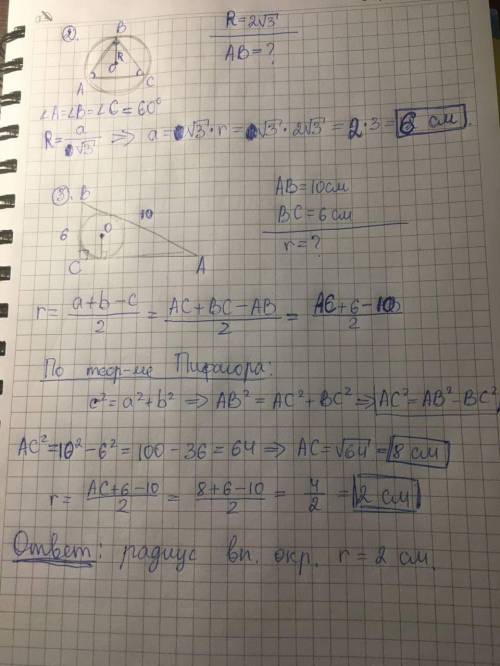 2.
B
R = 2√3
O
R
AB = ?
A
C
∠A=∠B=∠C = 60°
R = a/√3 ⟹ a = √3 · r = √3 · 2√3 = 2 · 3 = 6 см.
3.
B
10
AB = 10см
BC = 6 см
6
O
r = ?
C
A
r = (a+b-c)/2 = (AC+BC-AB)/2 = (AC+6-10)/2
По теор-ме Пифагора:
c² = a² + b² ⟹ AB² = AC² + BC² ⟹ AC² = AB² - BC²
AC² = 10² - 6² = 100 - 36 = 64 ⟹ AC = √64 = 8 см
r = (AC+6-10)/2 = (8+6-10)/2 = 4/2 = 2 см
Ответ: радиус вп. окр. r = 2 см.